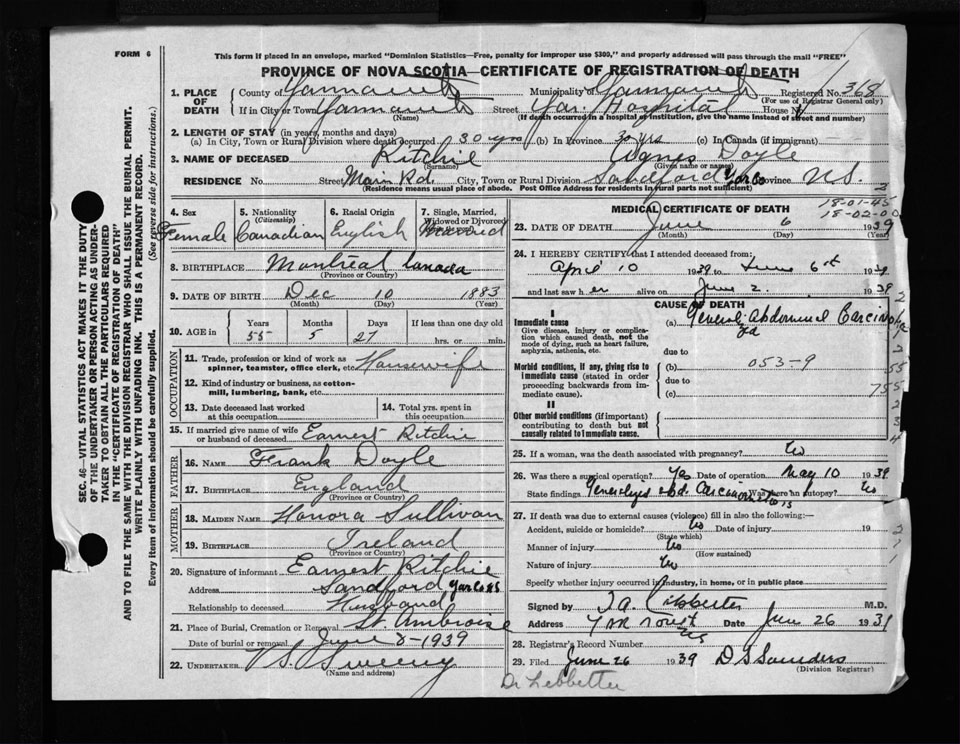 FORM 6
This form if placed in an envelope, marked "Dominion Statistics—Free, penalty for improper use $300," and properly addressed will pass through the mail "FREE"
PROVINCE OF NOVA SCOTIA—CERTIFICATE OF REGISTRATION OF DEATH
1. PLACE OF DEATH County of Yarmouth Municipality of Yarmouth Registered No. 368
(For use of Registrar General only)
If in City or Town Yarmouth Street Yar. Hospital House No.
(Name) (If death occurred in a hospital or institution, give the name instead of street and number)
2. LENGTH OF STAY (in years, months and days)
(a) In City, Town or Rural Division where death occurred 30 yrs (b) In Province 30 yrs (c) In Canada (if immigrant)
3. NAME OF DECEASED Ritchie Agnes Doyle
(Surname) (Given name or names)
RESIDENCE No. Street Main Rd. City, Town or Rural Division Sandford Yar Co Province N.S.
(Residence means usual place of abode. Post Office Address for residents in rural parts not sufficient)
4. Sex 5. Nationality (Citizenship) 6. Racial Origin 7. Single, Married, Widowed or Divorced
Female Canadian English Married
8. BIRTHPLACE Montreal Canada
(Province or Country)
9. DATE OF BIRTH Dec 10 1883
(Month) (Day) (Year)
10. AGE in Years Months Days If less than one day old
55 5 27 hrs. or min.
OCCUPATION
11. Trade, profession or kind of work as spinner, teamster, office clerk, etc. Housewife
12. Kind of industry or business, as cotton-mill, lumbering, bank, etc.
13. Date deceased last worked at this occupation 14. Total yrs. spent in this occupation
15. If married give name of wife or husband of deceased Earnest Ritchie
FATHER
16. NAME Frank Doyle
17. BIRTHPLACE England
(Province or Country)
MOTHER
18. MAIDEN NAME Honora Sullivan
19. BIRTHPLACE Ireland
(Province or Country)
20. Signature of informant Earnest Ritchie
Address Sandford Yar Co NS
Relationship to deceased Husband
21. Place of Burial, Cremation or Removal St Ambroise
Date of burial or removal June 8-1939
22. UNDERTAKER V. S. Sweeny
(Name and address)
MEDICAL CERTIFICATE OF DEATH
18-01-45
18-02-00
23. DATE OF DEATH June 6 1939
(Month) (Day) (Year)
24. I HEREBY CERTIFY that I attended deceased from:
April 10 1939 to June 6th 1939
and last saw her alive on June 2. 1939
CAUSE OF DEATH
I
Immediate cause
Give disease, injury or complication which caused death, not the mode of dying, such as heart failure, asphyxia, asthenia, etc.
(a) General Abdominal
due to
Morbid conditions, if any, giving rise to immediate cause (stated in order proceeding backwards from immediate cause).
(b) 053-9
due to
(c)
II
Other morbid conditions (if important) contributing to death but not causally related to immediate cause.
25. If a woman, was the death associated with pregnancy? No
26. Was there a surgical operation? Yes Date of operation May 10 1939
State findings Was there an autopsy? No
27. If death was due to external causes (violence) fill in also the following:—
Accident, suicide or homicide? No Date of injury 19
(State which)
Manner of injury No
(How sustained)
Nature of injury No
Specify whether injury occurred in industry, in home, or in public place
Signed by M.D.
Address Yarmouth NS Date June 26 1939
28. Registrar's Record Number
29. Filed June 26 1939 D S Saunders
(Division Registrar)
Dr Lebbetter
SEC. 46—VITAL STATISTICS ACT MAKES IT THE DUTY OF THE UNDERTAKER OR PERSON ACTING AS UNDERTAKER TO OBTAIN ALL THE PARTICULARS REQUIRED IN THE "CERTIFICATE OF REGISTRATION OF DEATH" AND TO FILE THE SAME WITH THE DIVISION REGISTRAR WHO SHALL ISSUE THE BURIAL PERMIT.
WRITE PLAINLY WITH UNFADING INK. THIS IS A PERMANENT RECORD.
Every item of information should be carefully supplied. (See reverse side for instructions.)